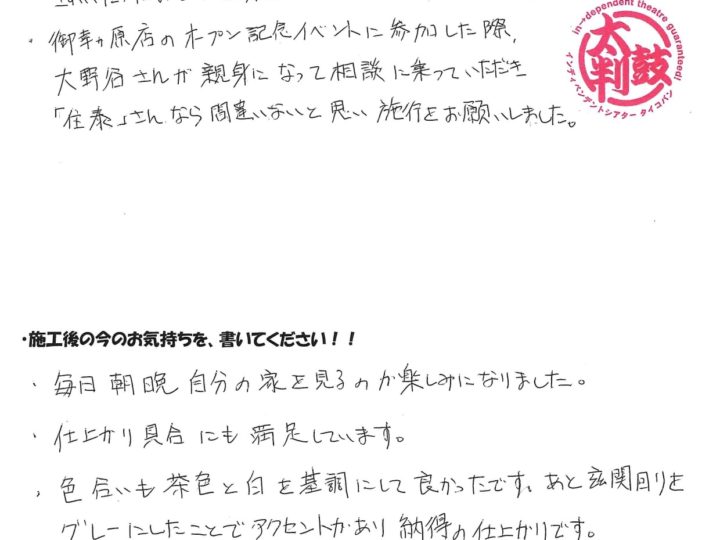 ・御幸ヶ原店のオープン記念イベントに参加した際、
大野谷さんが親身になって相談に乗っていただき
「住泰」さんなら間違いないと思い施行をお願いしました。
in→dependent theatre guaranteed!
太鼓判
インディペンデントシアター タイコバン
・施工後の今のお気持ちを、書いてください！！
・毎日朝晩自分の家を見るのが楽しみになりました。
・仕上がり具合にも満足しています。
・色合いも茶色と白を基調にして良かったです。あと玄関回りを
グレーにしたことでアクセントがあり納得の仕上がりです。